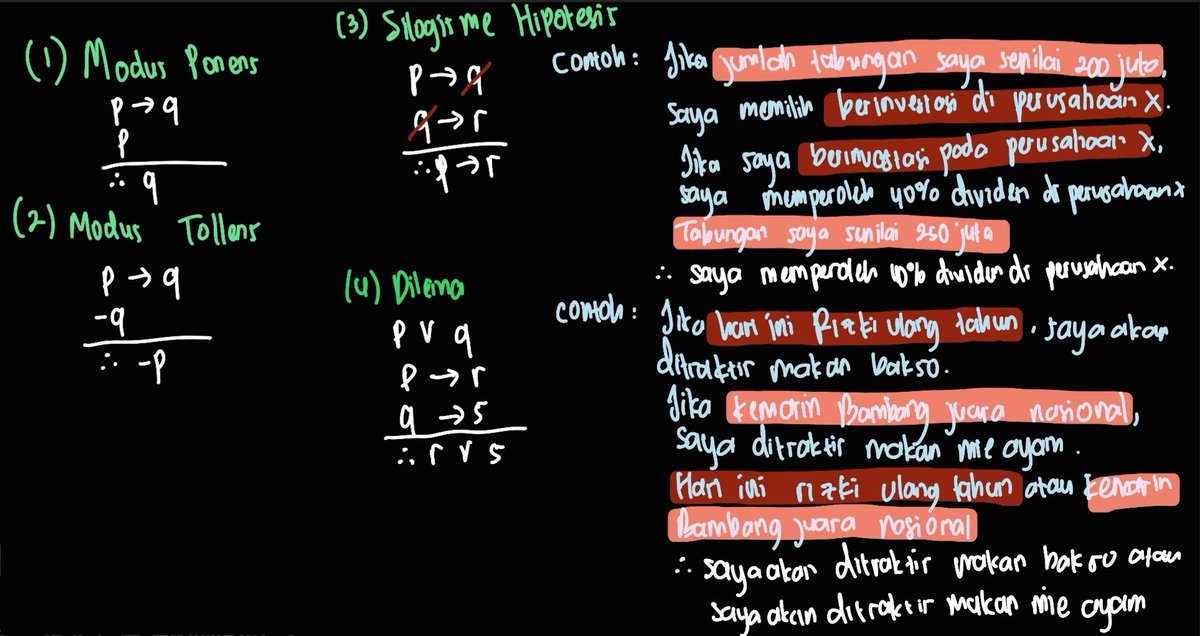 (1) Modus Ponens
p → q
p
∴ q
(2) Modus Tollens
p → q
-q
∴ -p
(3) Silogisme Hipotesis
p → q
q → r
∴ p → r
Contoh: Jika jumlah tabungan saya senilai 200 juta,
saya memilih berinvestasi di perusahaan X.
Jika saya berinvestasi pada perusahaan X,
saya memperoleh 40% dividen dr perusahaan x
Tabungan saya senilai 250 juta
∴ saya memperoleh 40% dividen dr perusahaan X.
(4) Dilema
p v q
p → r
q → s
∴ r v s
Contoh: Jika hari ini Rizki ulang tahun, saya akan
ditraktir makan bakso.
Jika kemarin Bambang juara nasional,
saya ditraktir makan mie ayam.
Hari ini rizki ulang tahun atau kemarin
Bambang juara nasional
∴ saya akan ditraktir makan bakso atau
saya akan ditraktir makan mie ayam